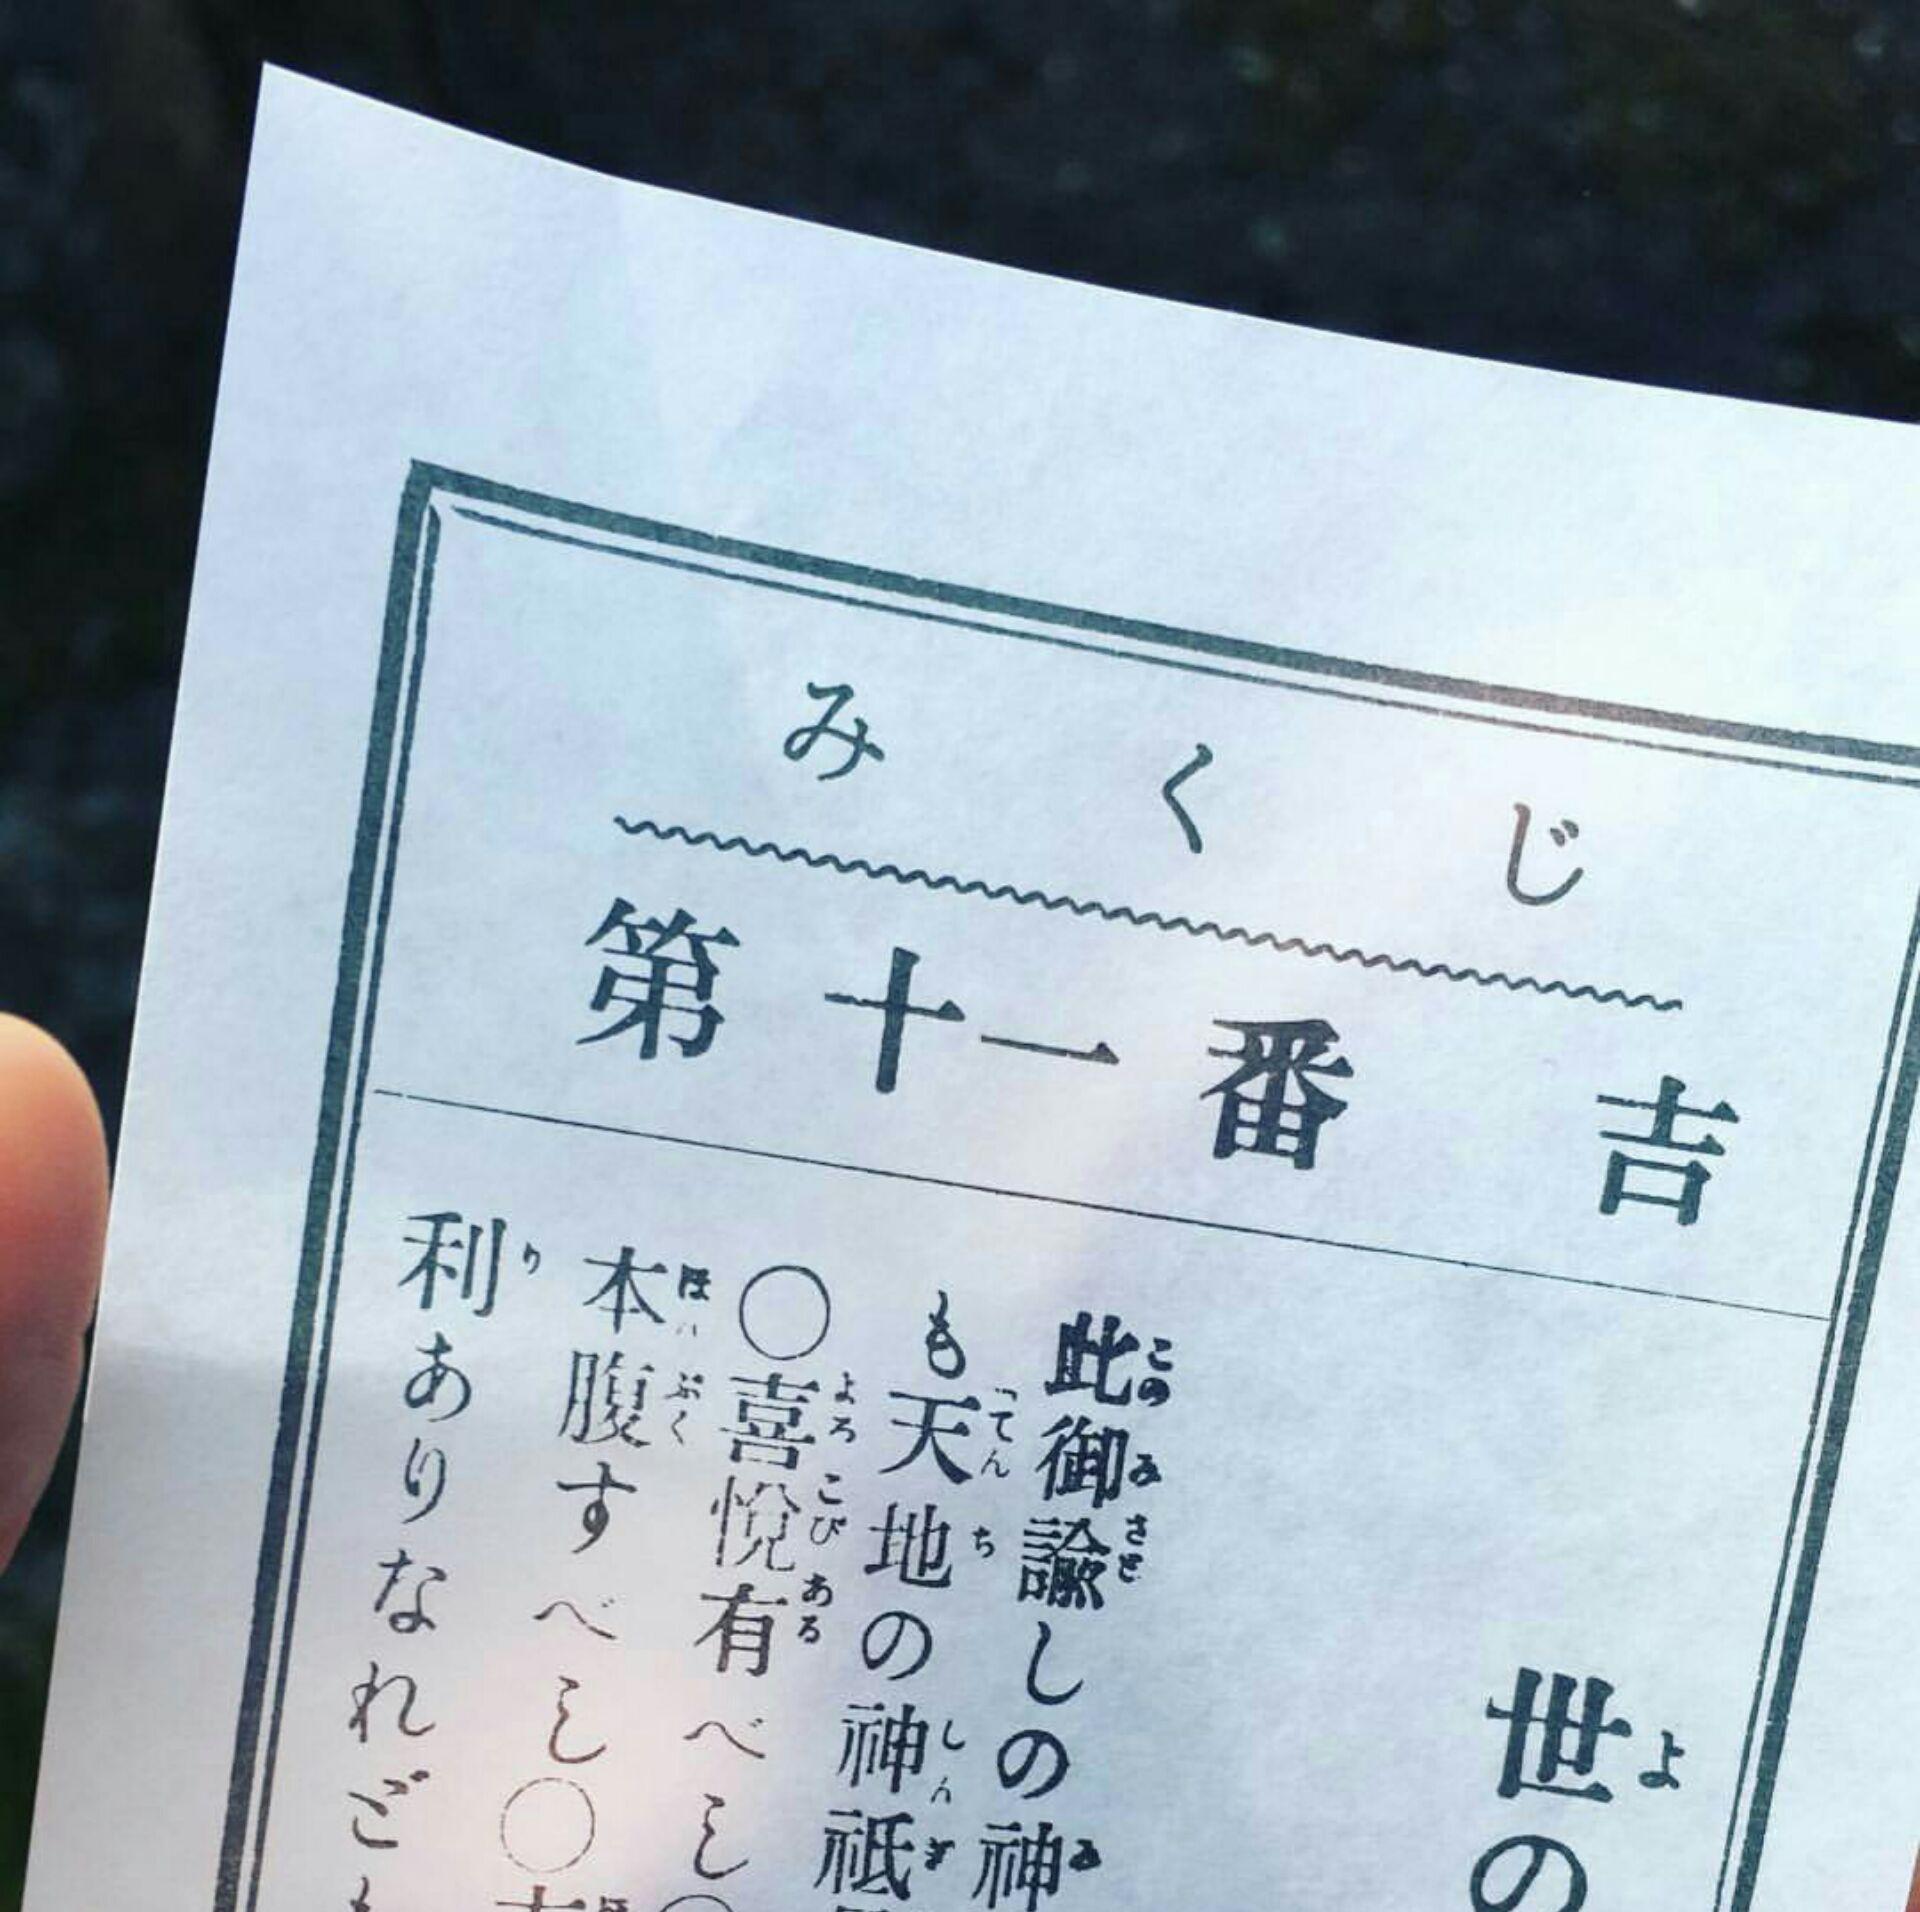 みくじ
第十一番 吉
世の
此御諭しの神
も天地の神祇
〇喜悦有べし〇
本腹すべし〇
利ありなれども